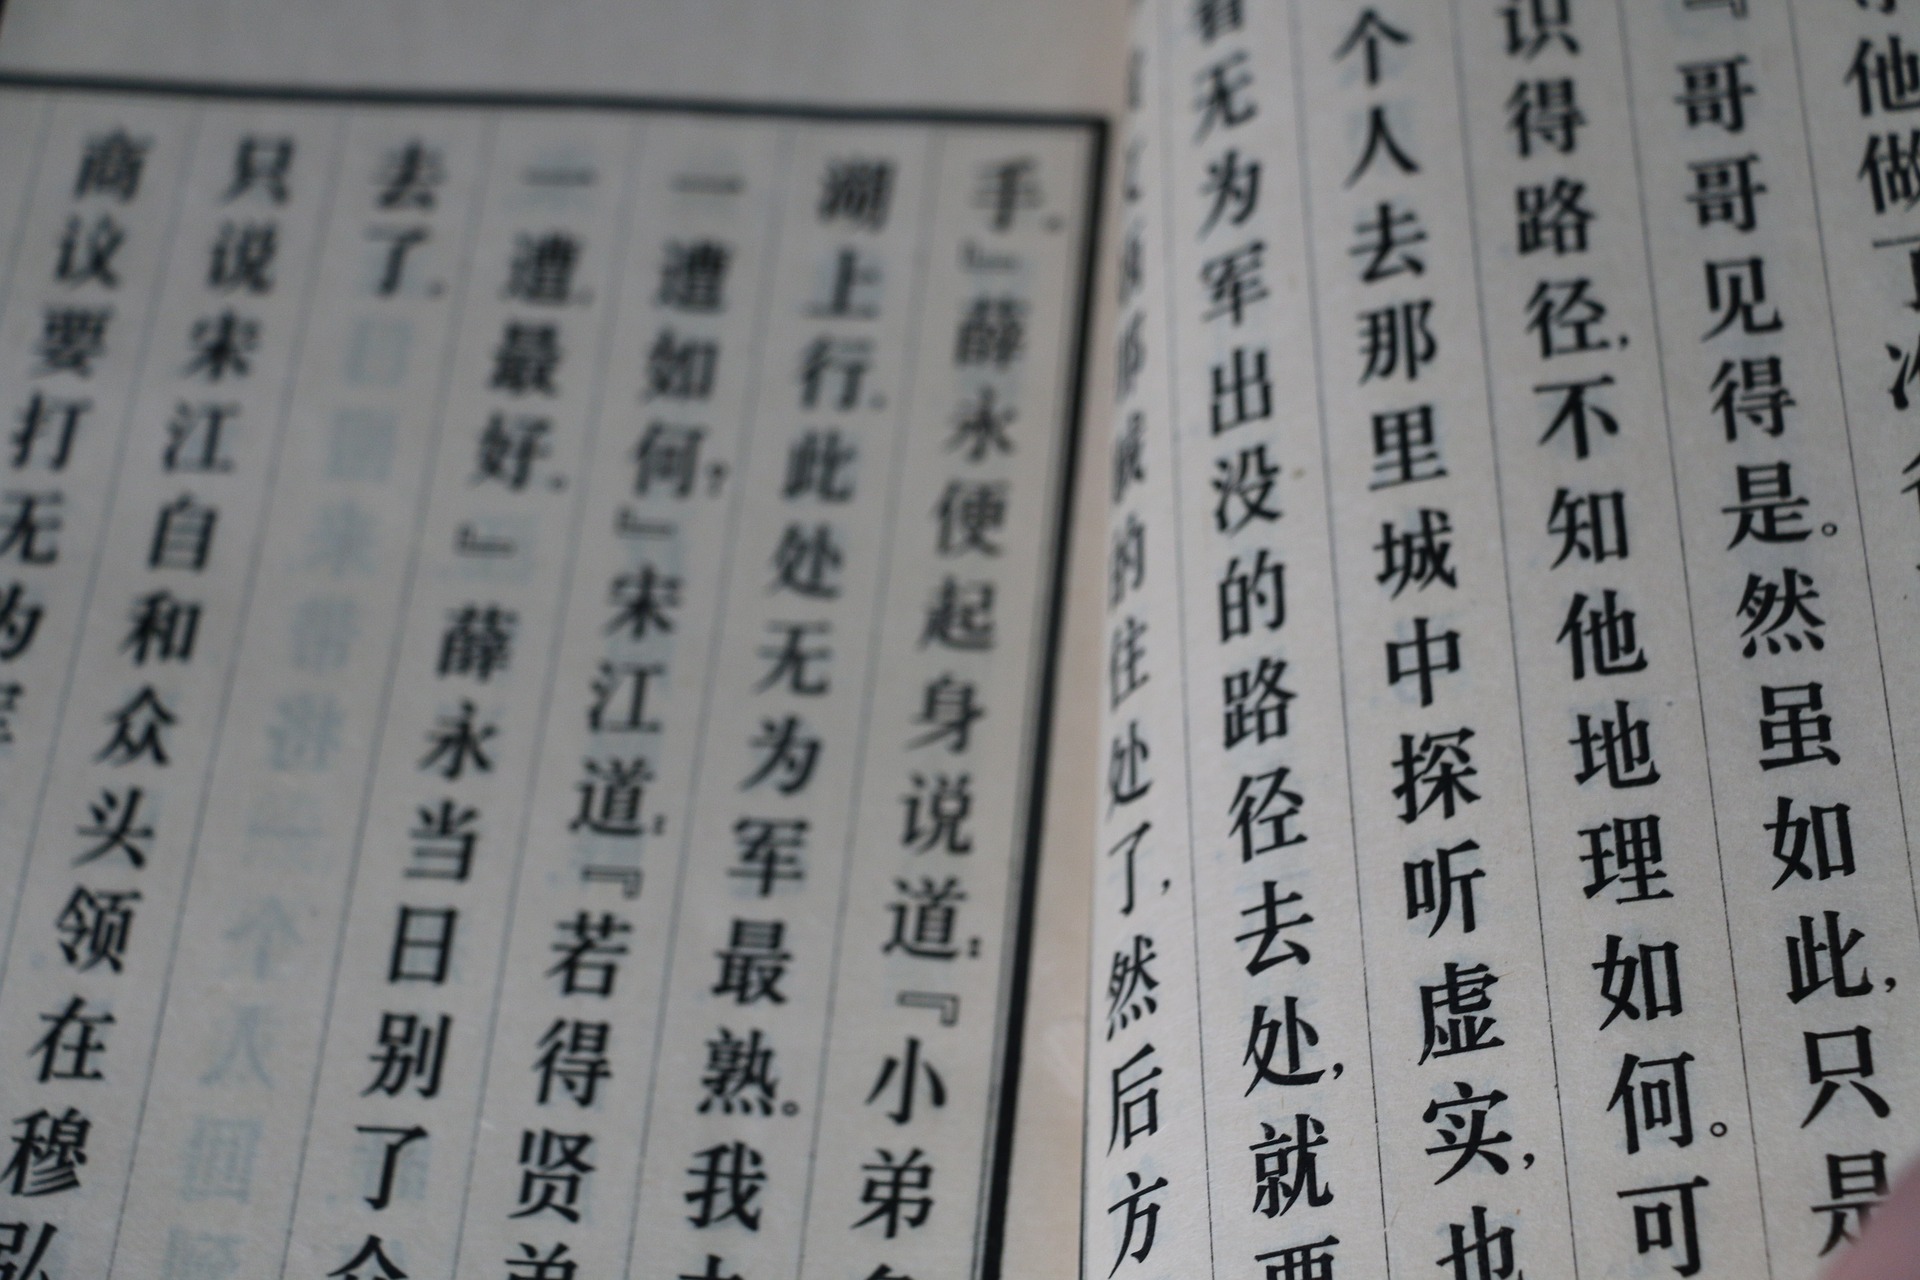 他做
『哥哥见得是。然虽如此,只是
识得路径,不知他地理如何。可
个人去那里城中探听虚实,也
看无为军出没的路径去处,就要
的往处了,然后方
手。』薛永便起身说道:『小弟
湖上行。此处无为军最熟。我
一遭如何?』宋江道:『若得贤弟
一遭,最好。』薛永当日别了众
去了。
只说宋江自和众头领在穆弘
商议要打无为军